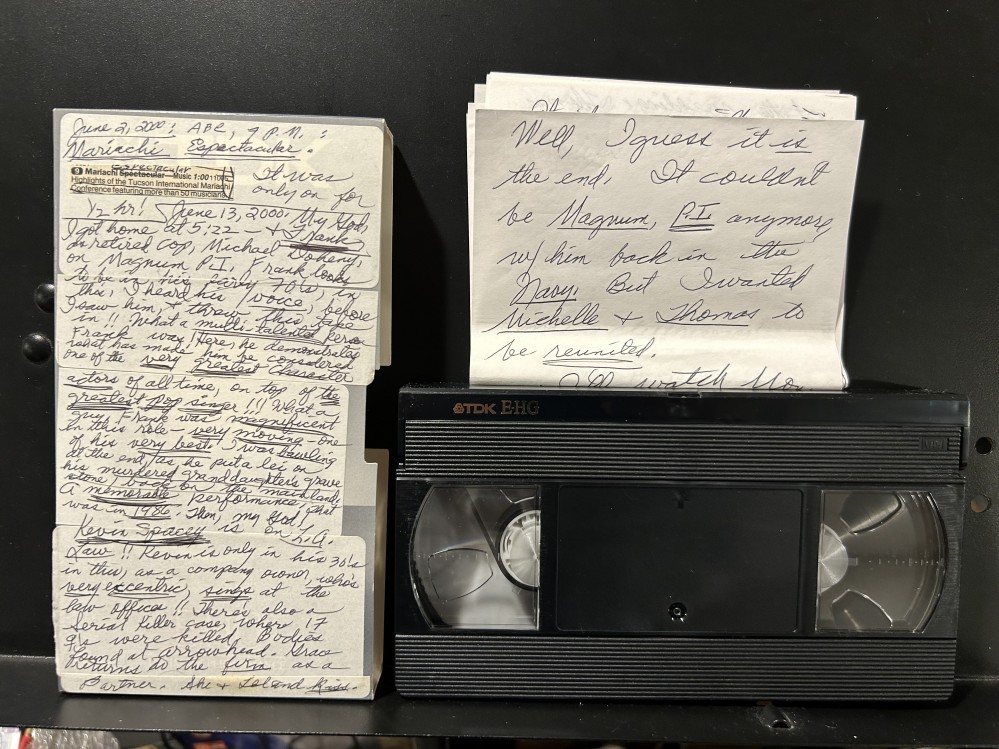 June 2, 2000: ABC, 9 P.M.:
Mariachi Espectacular.
ESPECTACULAR
9 Mariachi Spectacular—Music 1:00
Highlights of the Tucson International Mariachi
Conference featuring more than 50 musicians
It was
only on for
1/2 hr! June 13, 2000: My God,
I got home at 5:22 — + Frank,
retired cop, Michael Doheny,
on Magnum P.I. Frank looks
to be in his early 70's, in
this, I heard his voice, before
I saw him, + threw this tape
in!! What a multi-talented person
Frank was! Here, he demonstrates
what has made him be considered
one of the very greatest Character
actors of all time, on top of the
greatest pop singer!!! What a
guy. Frank was magnificent
in this role — very moving — one
of his very best. I was bawling
at the end, as he put a lei on
his murdered granddaughter's grave
stone, back on the mainland.
A memorable performance, that
was in 1986. Then, my God!
Kevin Spacey is on L.A.
Law!! Kevin is only in his 30's
in this, as a company owner, who's
very excentric, sings at the
law office!! There's also a
Serial Killer case, where 17
were killed, Bodies
found at arrowhead. Grace
returns to the firm as a
Partner. She + Leland Kiss.
Well, I guess it is
the end. It couldn't
be Magnum, P.I. anymore,
w/ him back in the
Navy. But I wanted
Michelle + Thomas to
be reunited.
I'll watch
TDK E-HG